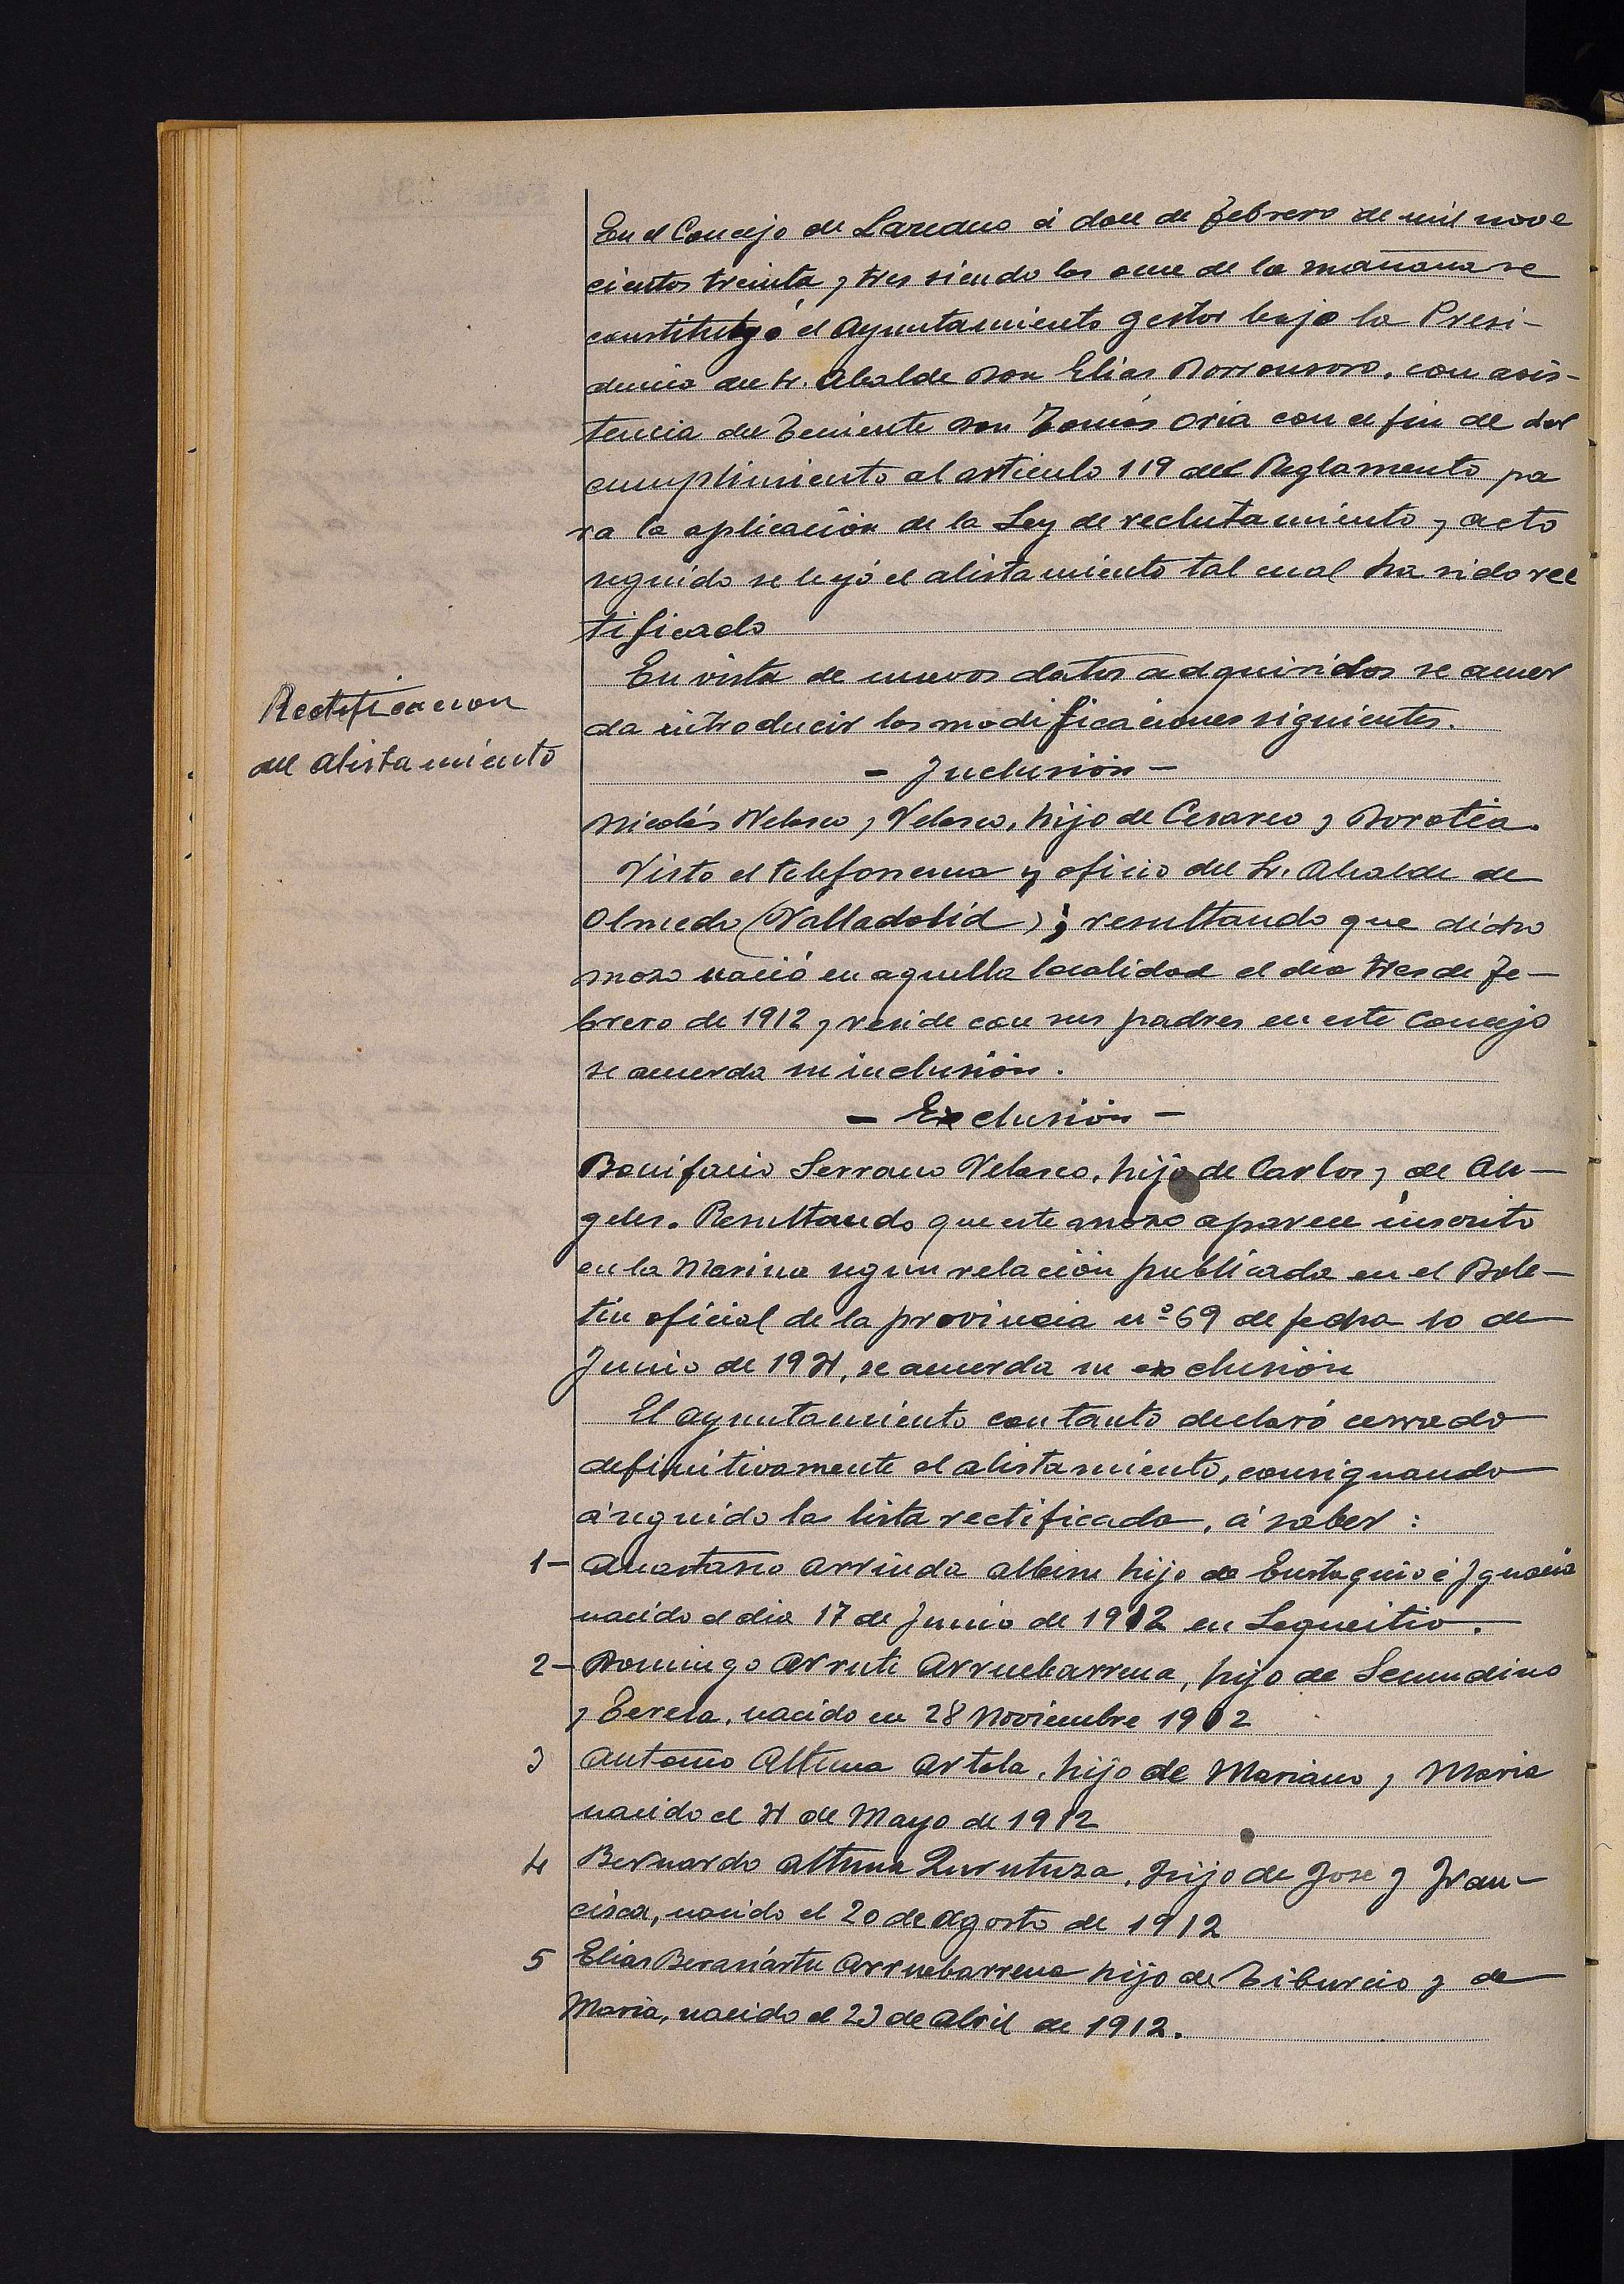 En el Concejo de Larraun á doce de Febrero de mil nove
cientos treinta y tres siendo las once de la mañana se
constituyó el Ayuntamiento gestor bajo la Presi-
dencia del Sr. Alcalde Don Elias Dorronsoro, con asis-
tencia del Teniente Don Tomás Oria con el fin de dar
cumplimiento al artículo 119 del Reglamento pa
ra la aplicación de la Ley de reclutamiento y acto
seguido se leyó el alistamiento tal cual ha sido rec
tificado
En vista de nuevos datos adquiridos se acuer
da introducir las modificaciones siguientes.
Rectificacion
del alistamiento
- Inclusión -
Nicolás Velasco y Velasco, hijo de Cesareo y Dorotea.
Visto el telefonema y oficio del Sr. Alcalde de
Olmedo (Valladolid); resultando que dicho
mozo nació en aquella localidad el dia tres de Fe-
brero de 1912 y reside con sus padres en este Concejo
se acuerda su inclusión.
- Exclusión -
Bonifacio Serrano Velasco, hijo de Carlos y de An-
geles. Resultando que este mozo aparece inscrito
en la Marina segun relación publicada en el Bole-
tin oficial de la provincia nº 69 de fecha 10 de
Junio de 1931, se acuerda su exclusión
El ayuntamiento con tanto declaró cerrado
definitivamente el alistamiento, consignando
á seguido la lista rectificada, á saber:
1- Anastasio Arrinda hijo de Eustaquio é Ignacia
nacido el dia 17 de Junio de 1912 en Lequeitio.
2- Domingo Arruti Arruebarrena, hijo de Secundino
y Teresa, nacido en 28 Noviembre 1912
3 Antonio Altuna Artola, hijo de Mariano y Maria
nacido el 31 de Mayo de 1912
4 Bernardo Altuna Zurutuza, hijo de José y Fran-
cisca, nacido el 20 de Agosto de 1912
5 Elias Berasiartu Arruebarrena hijo de Tiburcio y de
Maria, nacido el 23 de Abril de 1912.